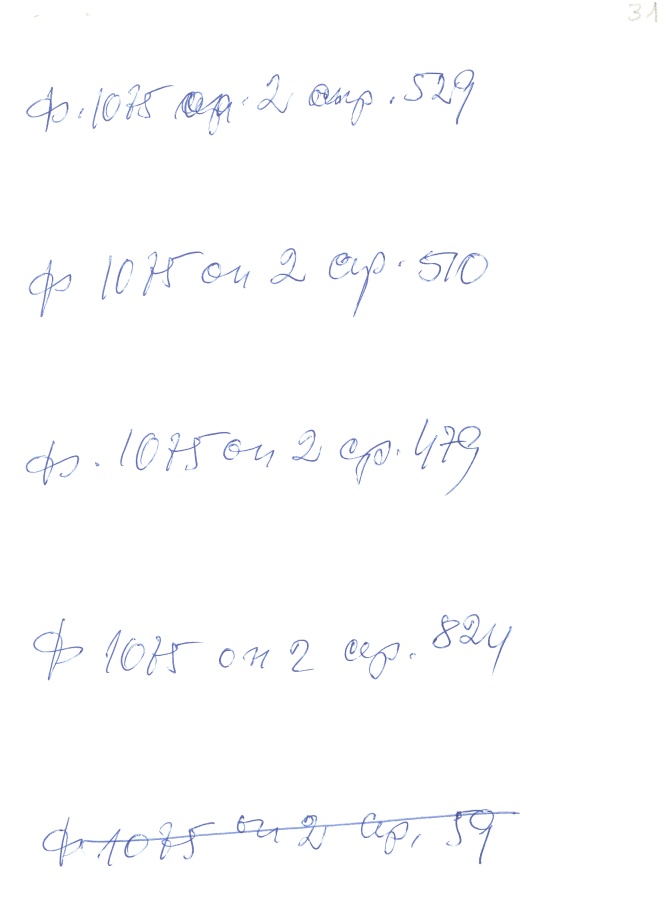 31
ф. 1075 оп. 2 спр. 529
ф 1075 оп 2 спр. 510
ф. 1075 оп 2 спр. 479
ф 1075 оп 2 спр. 824
ф. 1075 оп 2 спр. 59